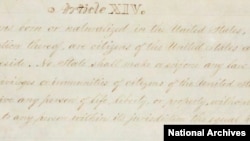 Article XIV.
born or naturalized in the United States,
thereof, are citizens of the United States
No State shall make or enforce any law
or immunities of citizens of the United
any person of life, liberty, or property, without
to any person within its jurisdiction the equal
National Archives